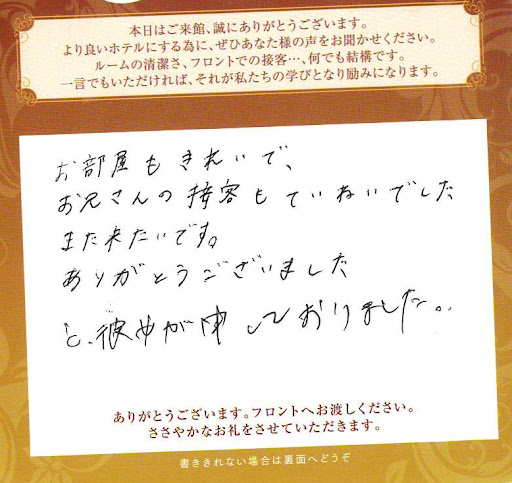 本日はご来館、誠にありがとうございます。
より良いホテルにする為に、ぜひあなた様の声をお聞かせください。
ルームの清潔さ、フロントでの接客…、何でも結構です。
一言でもいただければ、それが私たちの学びとなり励みになります。
お部屋もきれいで、
お兄さんの接客もていねいでした
また来たいです。
ありがとうございました
と、彼女が申しておりました。
ありがとうございます。フロントへお渡しください。
ささやかなお礼をさせていただきます。
書ききれない場合は裏面へどうぞ